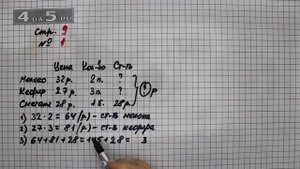 4 5
BAD RU
Стр. 9
№ 1
Цена Кол-во Ст-ть
Молоко 32р. 2п. ?
Кефир 27р. 3п. ? ? р
Сметана 28р. 1б. 28р
1) 32·2=64(р)-ст-ть молока
2) 27·3=81(р)-ст-ть кефира
3) 64+81+28=145+28= 3